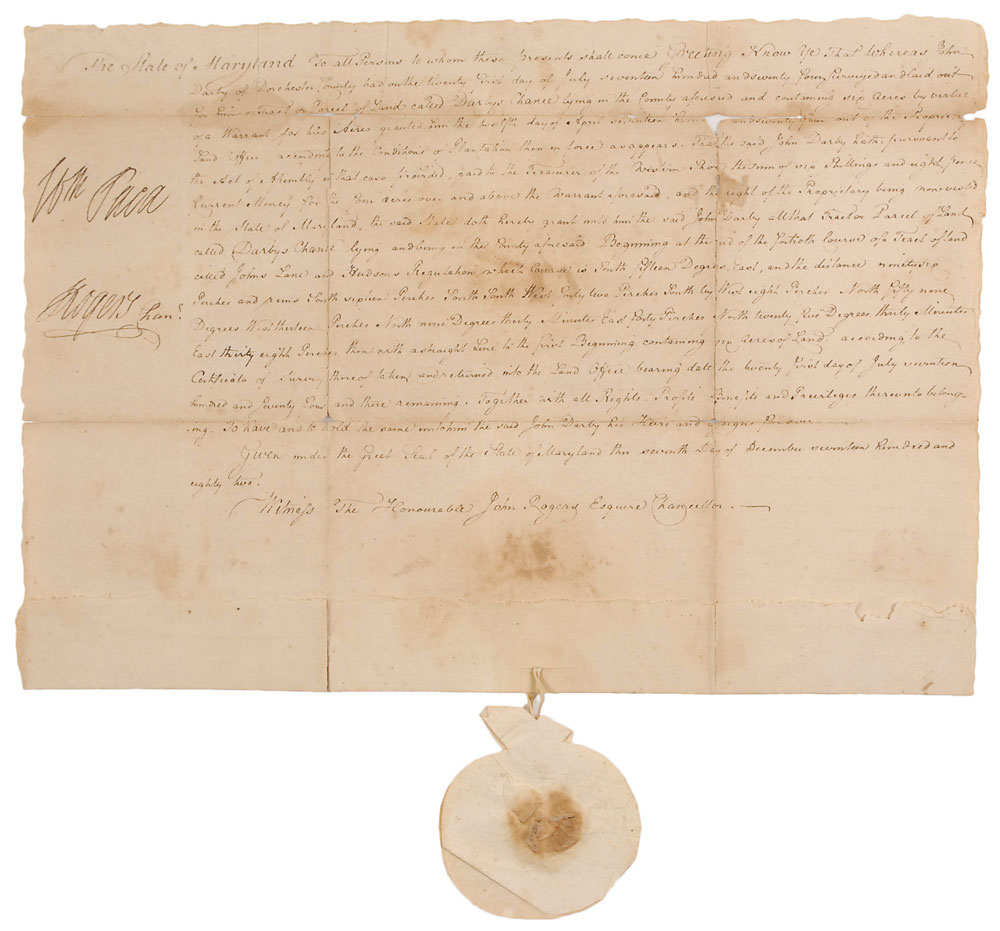 The State of Maryland To all Persons to whom these Presents shall come Greeting Know Ye That Whereas John
Darby of Dorchester County had on the twenty first day of July seventeen hundred and seventy four Surveyed and laid out
for him a Tract or Parcel of Land called Darbys Chance lying in the County aforesaid and containing six acres by virtue
of a Warrant for his Acres granted him the twelfth day of April seventeen hund and seventy four out of the Proprietary
Land Office according to the Conditions of Plantation then in force as appears. That the said John Darby hath pursuant to
the Act of Assembly in that case provided, paid to the Treasurer of the Western Shore the sum of six Shillings and eight pence
Current Money for the four acres over and above the Warrant aforesaid, and the right of the Proprietary being now vested
in the State of Maryland, the said State doth hereby grant unto him the said John Darby all that Tract or Parcel of Land
called Darbys Chance lying and being in the County aforesaid Beginning at the end of the fortieth Course of a Tract of Land
called Johns Lane and Hudsons Regulation which Course is South fifteen Degrees East, and the distance ninety six
Perches and runs South sixteen Perches South South West forty two Perches South by West eight Perches North fifty nine
Degrees West thirteen Perches North nine Degrees thirty Minutes East forty Perches North twenty five Degrees thirty Minutes
East thirty eight Perches then with a straight Line to the first Beginning containing six acres of Land according to the
Certificate of Survey thereof taken and returned into the Land Office bearing date the twenty first day of July seventeen
hundred and seventy four and there remaining. Together with all Rights Profits Benefits and Privileges thereunto belong-
ing. To have and to hold the same unto him the said John Darby his Heirs and assigns forever
Given under the Great Seal of the State of Maryland this seventh Day of December seventeen hundred and
eighty two.
Witness The Honourable John Rogers Esquire Chancellor
Wm Paca
J Rogers Chan.